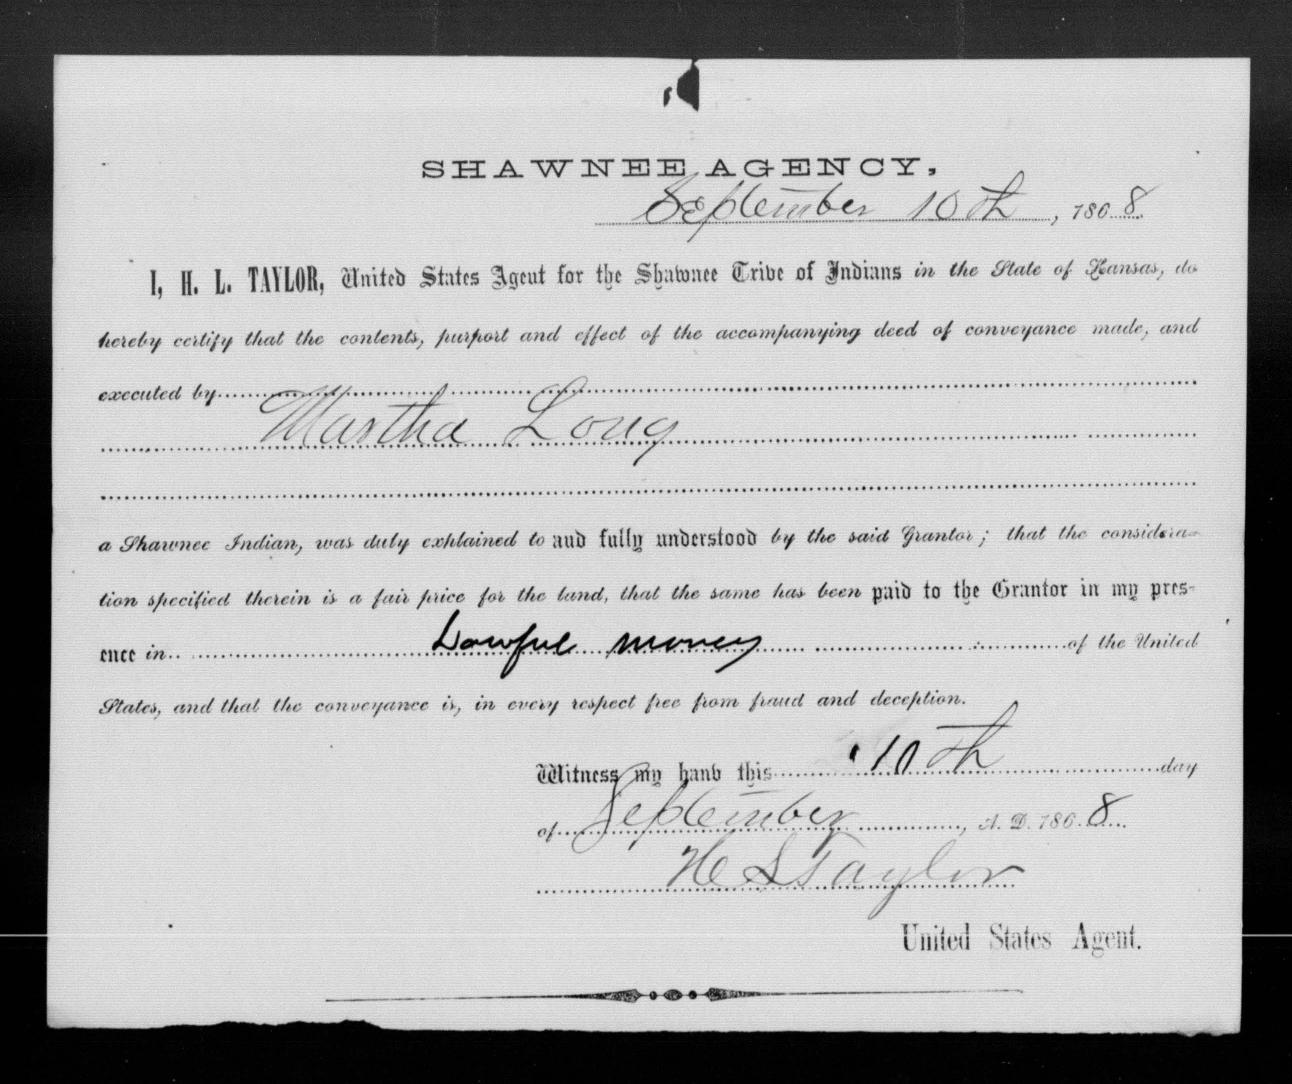 SHAWNEE AGENCY,
September 10th, 1868.
I, H. L. TAYLOR, United States Agent for the Shawnee Trive of Indians in the State of Kansas, do
hereby certify that the contents, purport and effect of the accompanying deed of conveyance made, and
executed by
Martha Long
a Shawnee Indian, was duly explained to and fully understood by the said Grantor; that the considera-
tion specified therein is a fair price for the land, that the same has been paid to the Grantor in my pres-
ence in Lawful money of the United
States, and that the conveyance is, in every respect free from fraud and deception.
Witness my hand this 10th day
of September, A. D. 1868
H L Taylor
United States Agent.